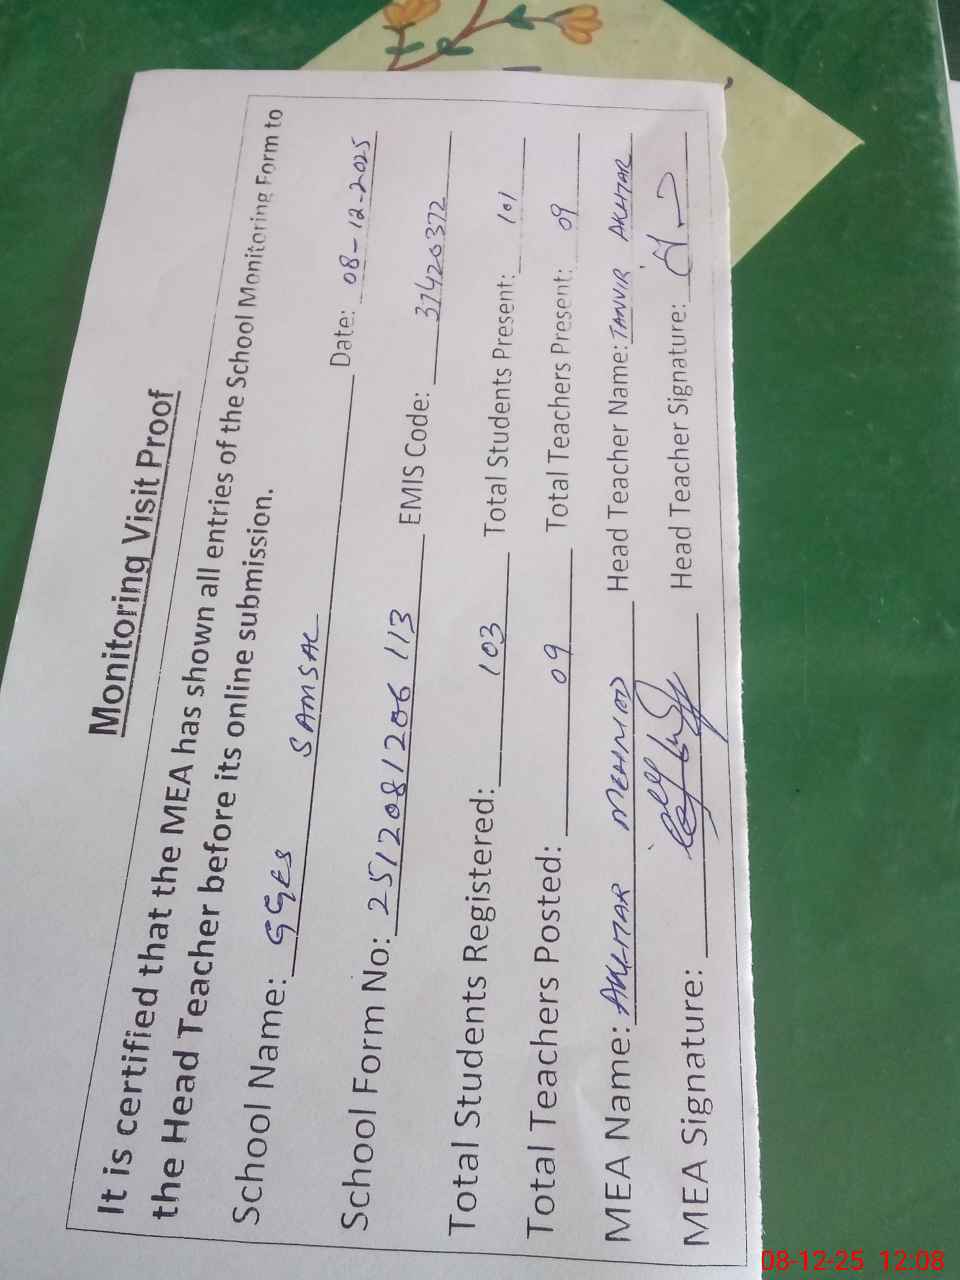 Monitoring Visit Proof
It is certified that the MEA has shown all entries of the School Monitoring Form to
the Head Teacher before its online submission.
School Name: GGES SAMSAL Date: 08-12-2025
School Form No: 2512081206113 EMIS Code: 37420372
Total Students Registered: 103 Total Students Present: 101
Total Teachers Posted: 09 Total Teachers Present: 09
MEA Name: AKHTAR MEHMOD Head Teacher Name: TANVIR AKHTAR
MEA Signature: Head Teacher Signature:
08-12-25 12:08